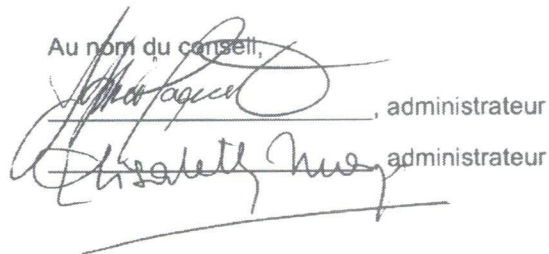 Au nom du conseil,
, administrateur
Elisabeth administrateur